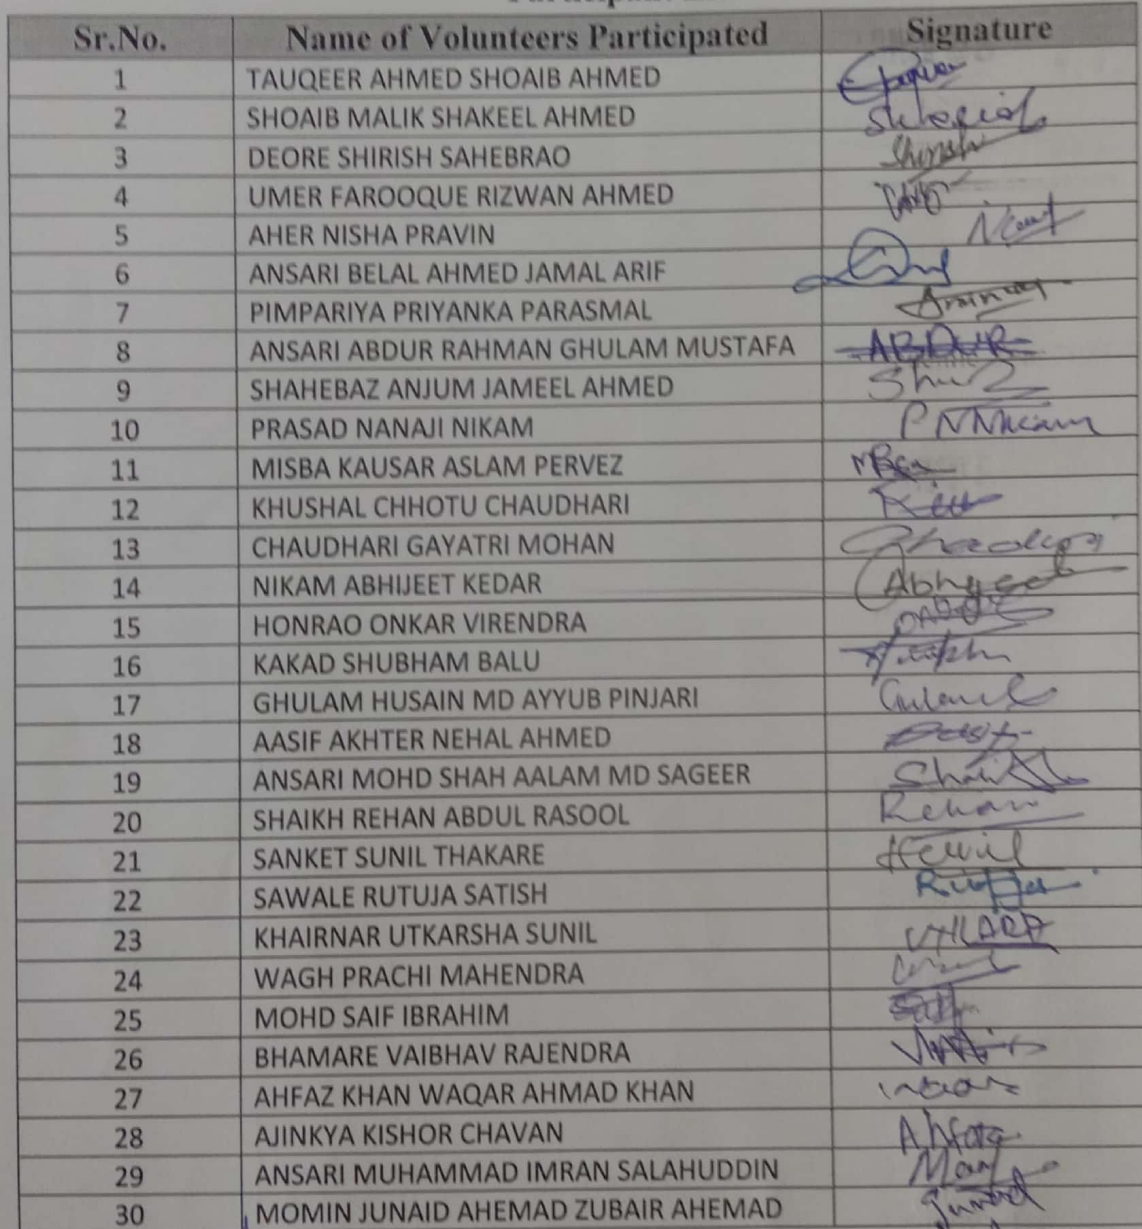 Sr.No. Name of Volunteers Participated Signature
1 TAUQEER AHMED SHOAIB AHMED
2 SHOAIB MALIK SHAKEEL AHMED
3 DEORE SHIRISH SAHEBRAO Shirish
4 UMER FAROOQUE RIZWAN AHMED
5 AHER NISHA PRAVIN
6 ANSARI BELAL AHMED JAMAL ARIF
7 PIMPARIYA PRIYANKA PARASMAL
8 ANSARI ABDUR RAHMAN GHULAM MUSTAFA ABDUR
9 SHAHEBAZ ANJUM JAMEEL AHMED
10 PRASAD NANAJI NIKAM PNNikam
11 MISBA KAUSAR ASLAM PERVEZ
12 KHUSHAL CHHOTU CHAUDHARI
13 CHAUDHARI GAYATRI MOHAN
14 NIKAM ABHIJEET KEDAR Abhijeet
15 HONRAO ONKAR VIRENDRA
16 KAKAD SHUBHAM BALU
17 GHULAM HUSAIN MD AYYUB PINJARI
18 AASIF AKHTER NEHAL AHMED
19 ANSARI MOHD SHAH AALAM MD SAGEER
20 SHAIKH REHAN ABDUL RASOOL Rehan
21 SANKET SUNIL THAKARE
22 SAWALE RUTUJA SATISH Rutuja
23 KHAIRNAR UTKARSHA SUNIL
24 WAGH PRACHI MAHENDRA
25 MOHD SAIF IBRAHIM
26 BHAMARE VAIBHAV RAJENDRA
27 AHFAZ KHAN WAQAR AHMAD KHAN
28 AJINKYA KISHOR CHAVAN
29 ANSARI MUHAMMAD IMRAN SALAHUDDIN
30 MOMIN JUNAID AHEMAD ZUBAIR AHEMAD